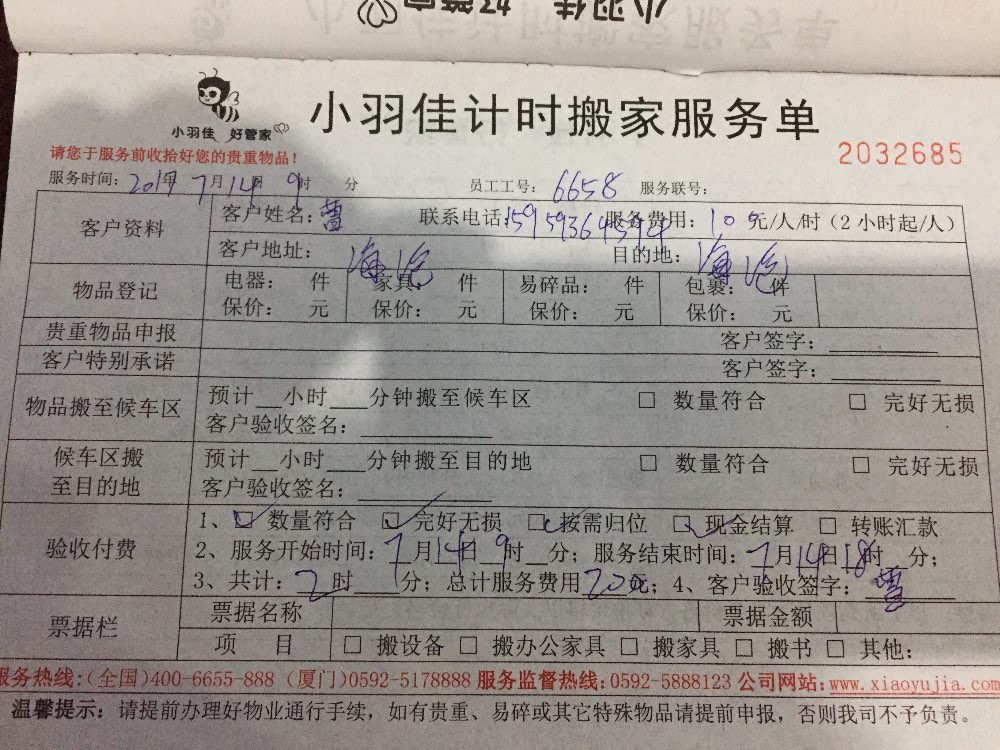 小羽佳 好管家
小羽佳计时搬家服务单
小羽佳 好管家
2032685
请您于服务前收拾好您的贵重物品！
服务时间：2017年 7月14日 9时 分 员工工号：6658 服务联号：
客户资料 客户姓名：曹 联系电话： 服务费用：100元/人/时（2小时起/人）
客户地址：海沧 目的地：海沧
物品登记 电器： 件 家具： 件 易碎品： 件 包裹： 件
保价： 元 保价： 元 保价： 元 保价： 元
贵重物品申报 客户签字：
客户特别承诺 客户签字：
物品搬至候车区 预计__小时___分钟搬至候车区 □ 数量符合 □ 完好无损
客户验收签名：
候车区搬至目的地 预计__小时___分钟搬至目的地 □ 数量符合 □ 完好无损
客户验收签名：
验收付费 1、☑ 数量符合 ☑ 完好无损 ☑ 按需归位 ☑ 现金结算 □ 转账汇款
2、服务开始时间：7月14日9时__分；服务结束时间：7月14日18时__分；
3、共计：2时___分；总计服务费用200元；4、客户验收签字：曹
票据栏 票据名称 票据金额
项 目 □ 搬设备 □ 搬办公家具 □ 搬家具 □ 搬书 □ 其他：
服务热线：(全国)400-6655-888 (厦门)0592-5178888 服务监督热线：0592-5888123 公司网站：www.xiaoyujia.com
温馨提示：请提前办理好物业通行手续，如有贵重、易碎或其它特殊物品请提前申报，否则我司不予负责。